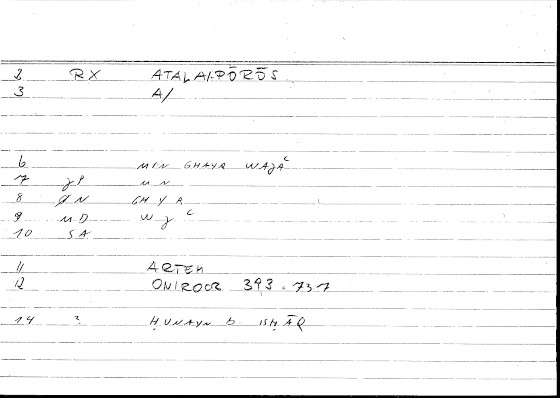 2 RX ATALAIPŌRŌS
3 A/
6 MIN GHAYR WAJAʿ
7 JP MN
8 ØN GHYR
9 MD WJʿ
10 SA
11 ARTEM
12 ONIROCR 393.737
14 ? ḤUNAYN b. ISḤĀQ